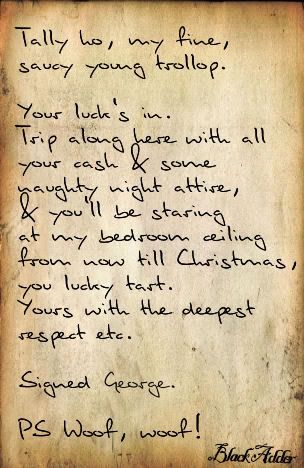 Tally ho, my fine,
saucy young trollop.
Your luck's in.
Trip along here with all
your cash & some
naughty night attire,
& you'll be staring
at my bedroom ceiling
from now till Christmas,
you lucky tart.
Yours with the deepest
respect etc.
Signed George.
PS Woof, woof!
Black Adder